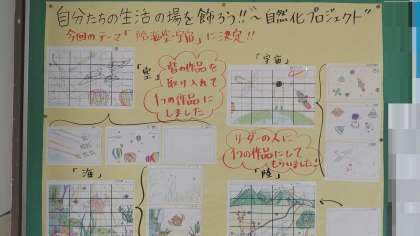 自分たちの生活の場を飾ろう!!~自然化プロジェクト~
今回のテーマ「陸・海・空・宇宙」に決定!!
「空」
皆の作品を
取り入れて
1つの作品に
しました
「宇宙」
リーダーの人に
1つの作品にして
もらいました!
「海」
「陸」